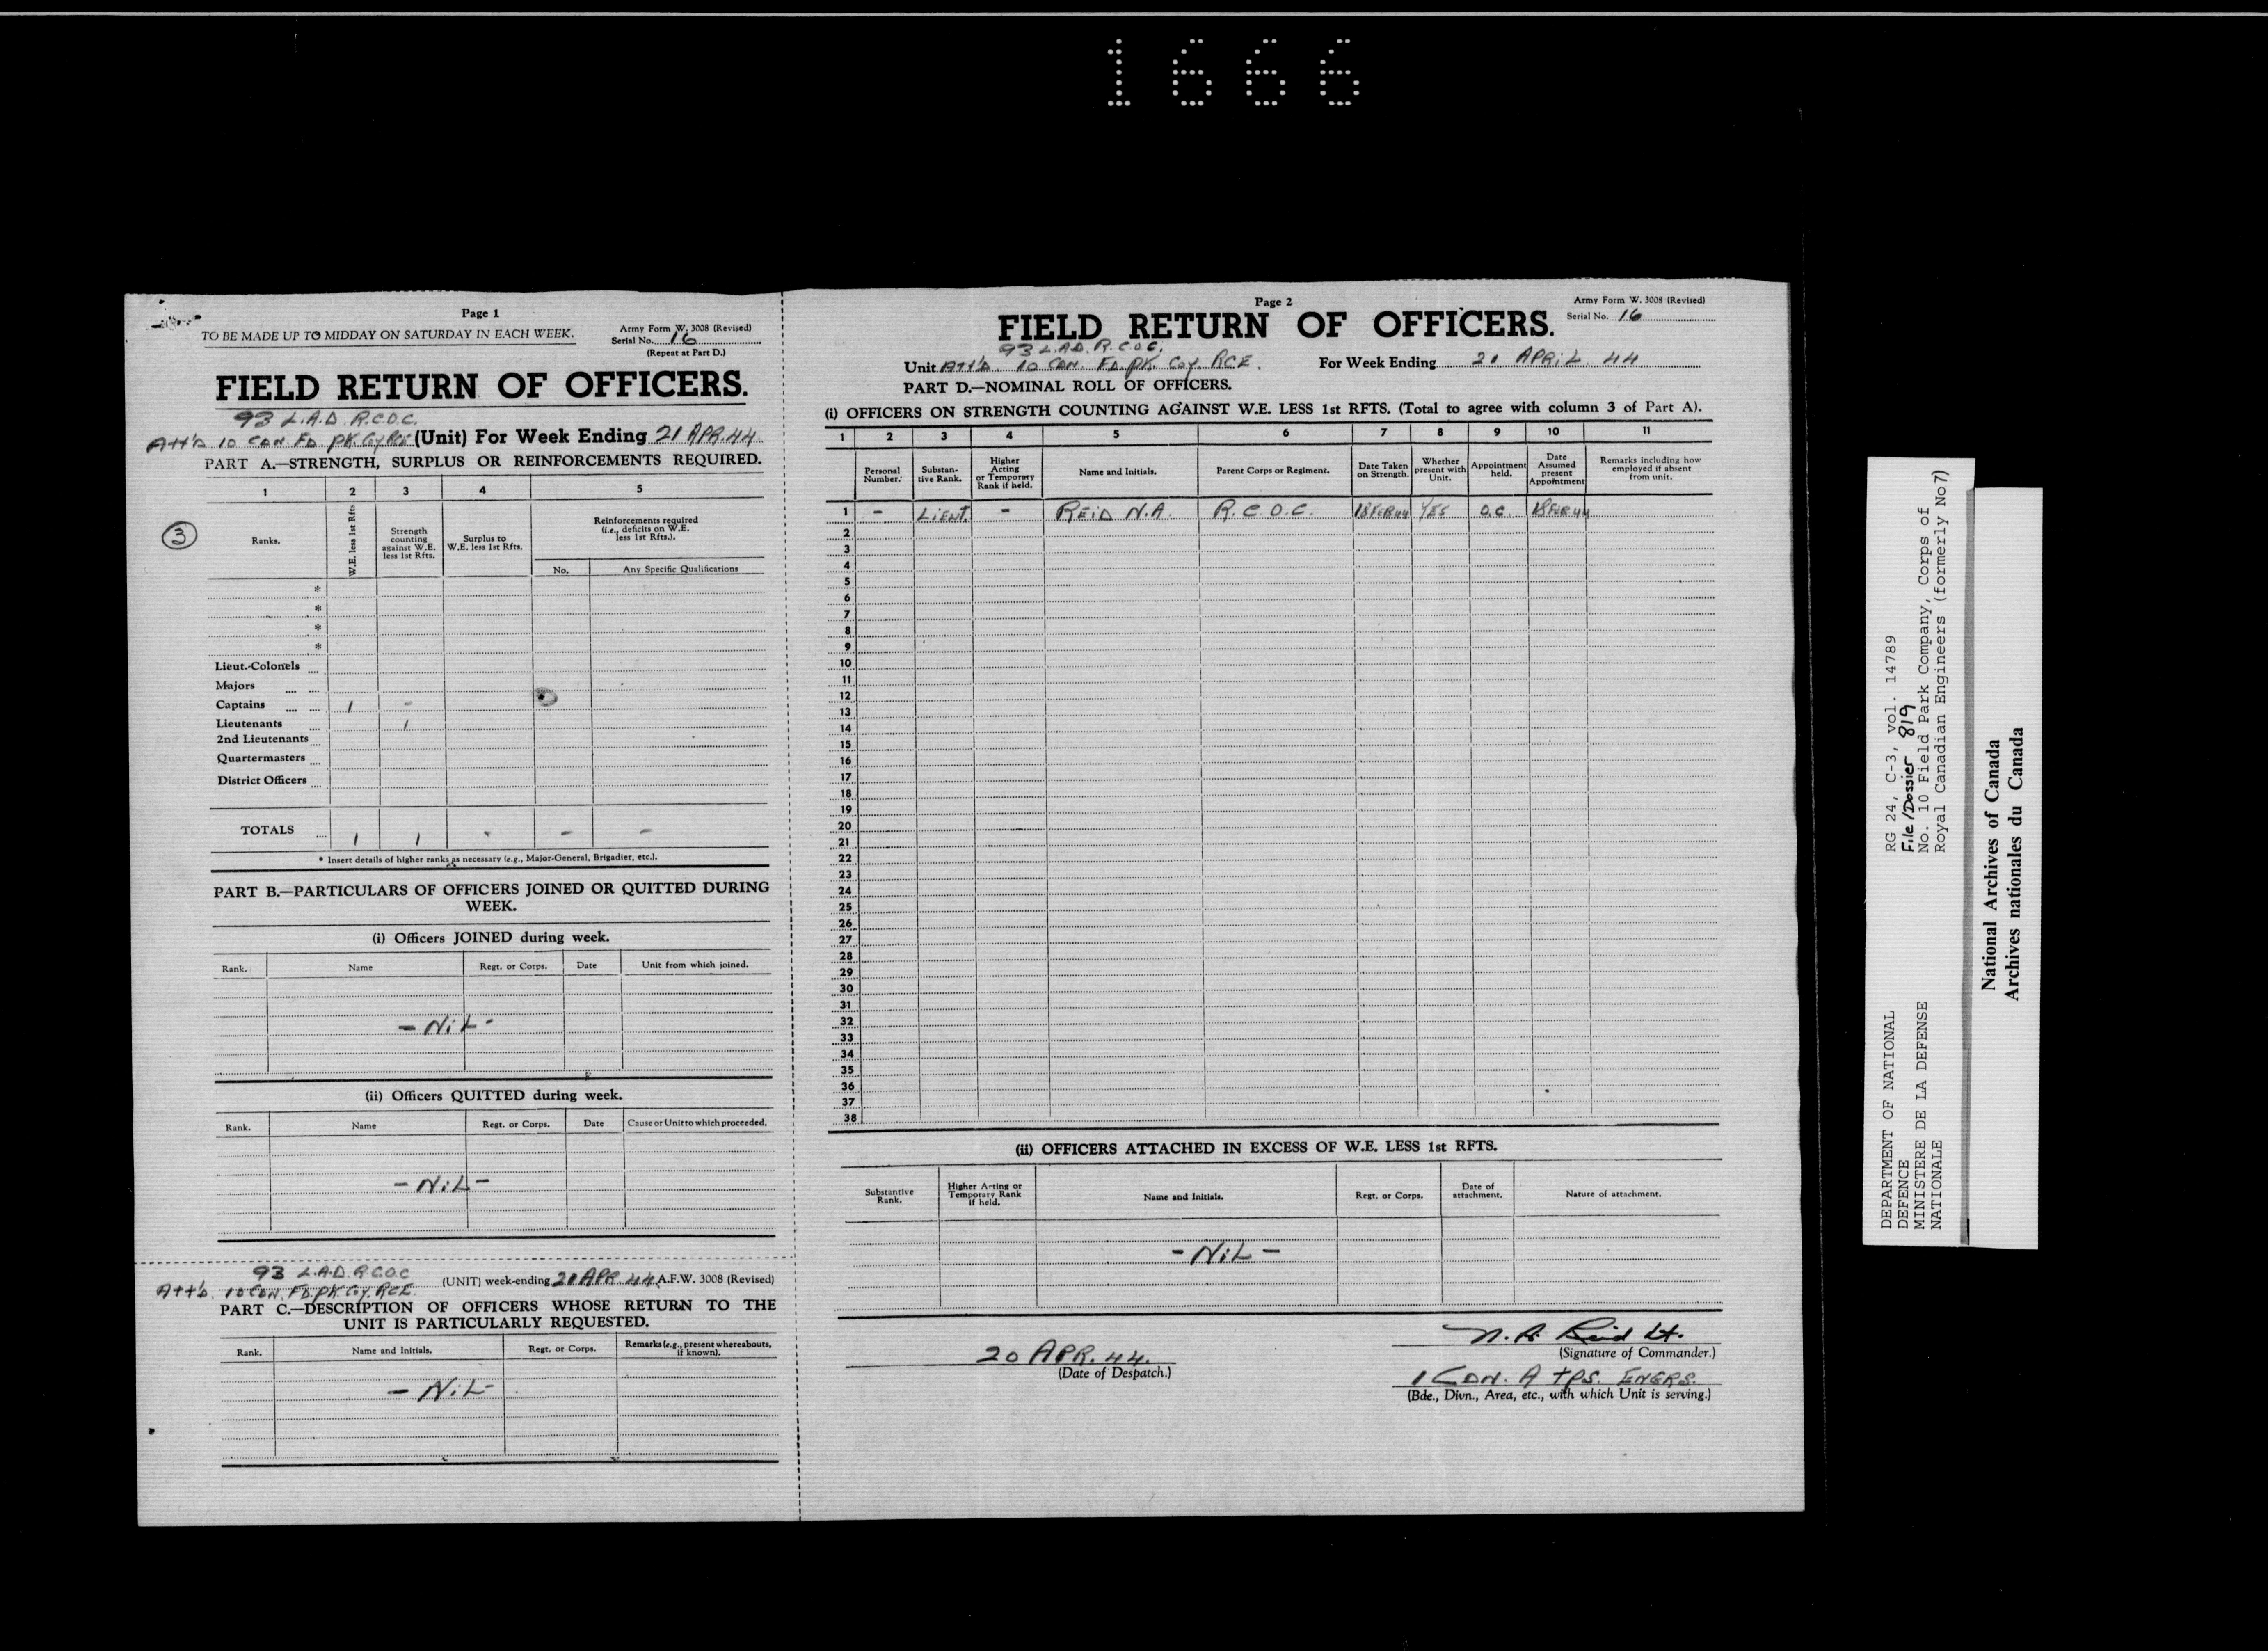 1666
Page 1
TO BE MADE UP TO MIDDAY ON SATURDAY IN EACH WEEK.
Army Form W. 3008 (Revised)
Serial No. 16
(Repeat at Part D.)
FIELD RETURN OF OFFICERS.
93 L.A.D. R.C.O.C.
Att'd 10 CDN. FD. PK. Coy RCE (Unit) For Week Ending 21 APR. 44
PART A.—STRENGTH, SURPLUS OR REINFORCEMENTS REQUIRED.
1 2 3 4 5
3
Ranks.
W.E. less 1st Rfts
Strength counting against W.E. less 1st Rfts.
Surplus to W.E. less 1st Rfts.
Reinforcements required (i.e., deficits on W.E. less 1st Rfts.).
No. Any Specific Qualifications
*
*
*
*
Lieut.-Colonels
Majors
Captains 1 -
Lieutenants 1
2nd Lieutenants
Quartermasters
District Officers
TOTALS 1 1 - - -
* Insert details of higher ranks as necessary (e.g., Major-General, Brigadier, etc.).
PART B.—PARTICULARS OF OFFICERS JOINED OR QUITTED DURING
WEEK.
(i) Officers JOINED during week.
Rank. Name Regt. or Corps. Date Unit from which joined.
- NiL -
(ii) Officers QUITTED during week.
Rank. Name Regt. or Corps. Date Cause or Unit to which proceeded.
- NiL -
93 L.A.D. R.C.O.C
Att'd. 10 CDN. FD. PK. Coy. RCE. (UNIT) week-ending 21 APR. 44. A.F.W. 3008 (Revised)
PART C.—DESCRIPTION OF OFFICERS WHOSE RETURN TO THE
UNIT IS PARTICULARLY REQUESTED.
Rank. Name and Initials. Regt. or Corps. Remarks (e.g., present whereabouts, if known).
- NiL -
Page 2
Army Form W. 3008 (Revised)
Serial No. 16
FIELD RETURN OF OFFICERS.
93 L.A.D. R.C.O.C.
Unit Att'd. 10 CDN. FD. PK. Coy. RCE. For Week Ending 21 APRiL 44
PART D.—NOMINAL ROLL OF OFFICERS.
(i) OFFICERS ON STRENGTH COUNTING AGAINST W.E. LESS 1st RFTS. (Total to agree with column 3 of Part A).
1 2 3 4 5 6 7 8 9 10 11
Personal Number.
Substantive Rank.
Higher Acting or Temporary Rank if held.
Name and Initials.
Parent Corps or Regiment.
Date Taken on Strength.
Whether present with Unit.
Appointment held.
Date Assumed present Appointment
Remarks including how employed if absent from unit.
1 - LiEUT. - REiD N.A. R.C.O.C. 18 FEB 44 YES O.C. 18 FEB 44
2
3
4
5
6
7
8
9
10
11
12
13
14
15
16
17
18
19
20
21
22
23
24
25
26
27
28
29
30
31
32
33
34
35
36
37
38
(ii) OFFICERS ATTACHED IN EXCESS OF W.E. LESS 1st RFTS.
Substantive Rank.
Higher Acting or Temporary Rank if held.
Name and Initials.
Regt. or Corps.
Date of attachment.
Nature of attachment.
- NiL -
20 APR. 44.
(Date of Despatch.)
N. A. Reid Lt.
(Signature of Commander.)
1 CDN. A TPS. ENGRS.
(Bde., Divn., Area, etc., with which Unit is serving.)
DEPARTMENT OF NATIONAL
DEFENCE
MINISTERE DE LA DEFENSE
NATIONALE
RG 24, C-3, vol. 14789
File/Dossier 819
No. 10 Field Park Company, Corps of
Royal Canadian Engineers (formerly No 7)
National Archives of Canada
Archives nationales du Canada